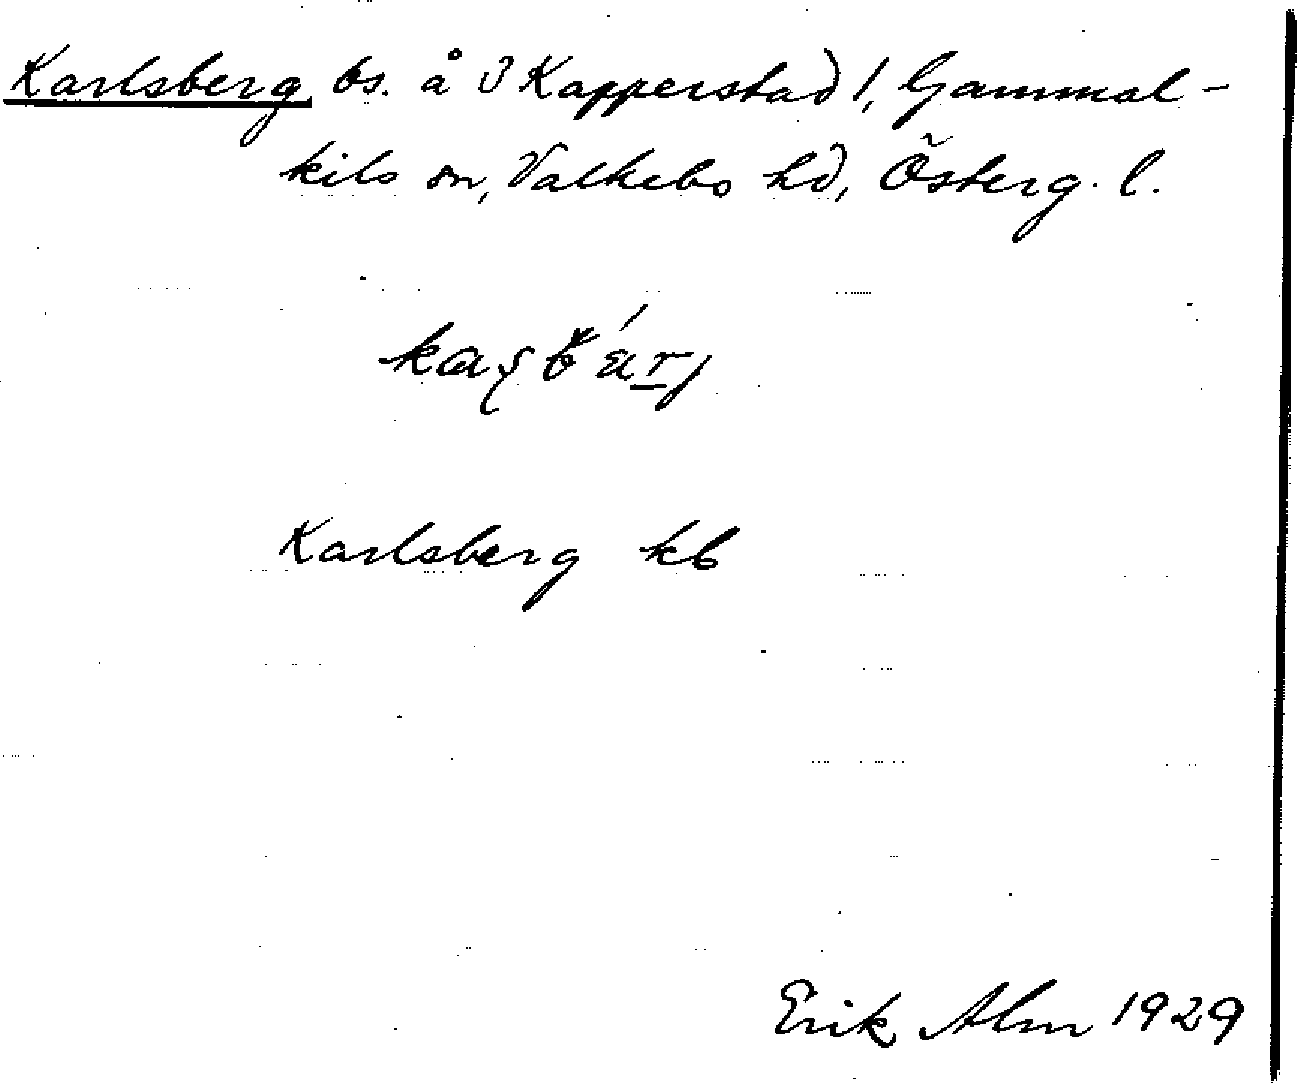 Karlsberg bs. å 3 Kapperstad 1, Gammal-
kils sn, Valkebo hd, Österg. l.
Karlsberg kb
Erik Alm 1929